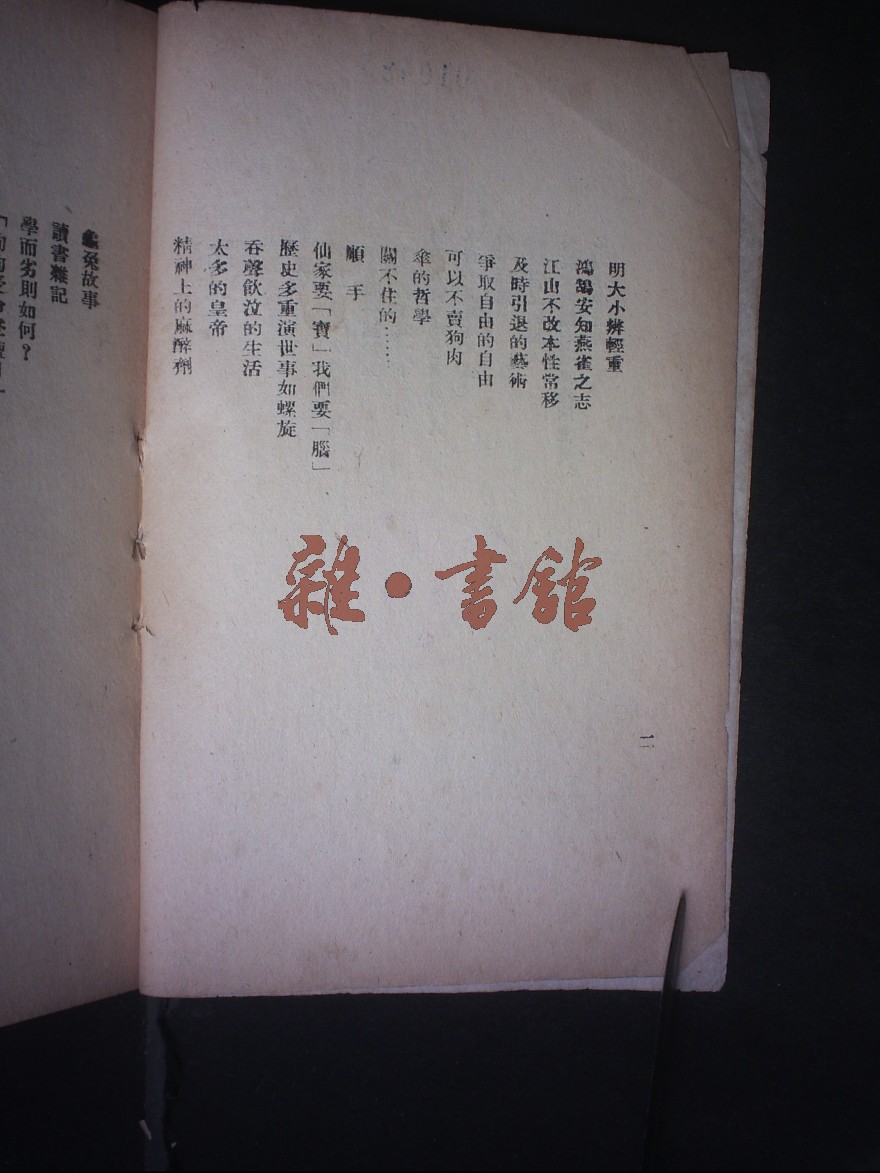 明大小辨輕重
鴻鵠安知燕雀之志
江山不改本性常移
及時引退的藝術
爭取自由的自由
可以不賣狗肉
傘的哲學
關不住的……
順手
仙家要「寶」我們要「腦」
歷史多重演世事如螺旋
吞聲飲泣的生活
太多的皇帝
精神上的麻醉劑
二
故事
讀書雜記
學而劣則如何？
雜•書館